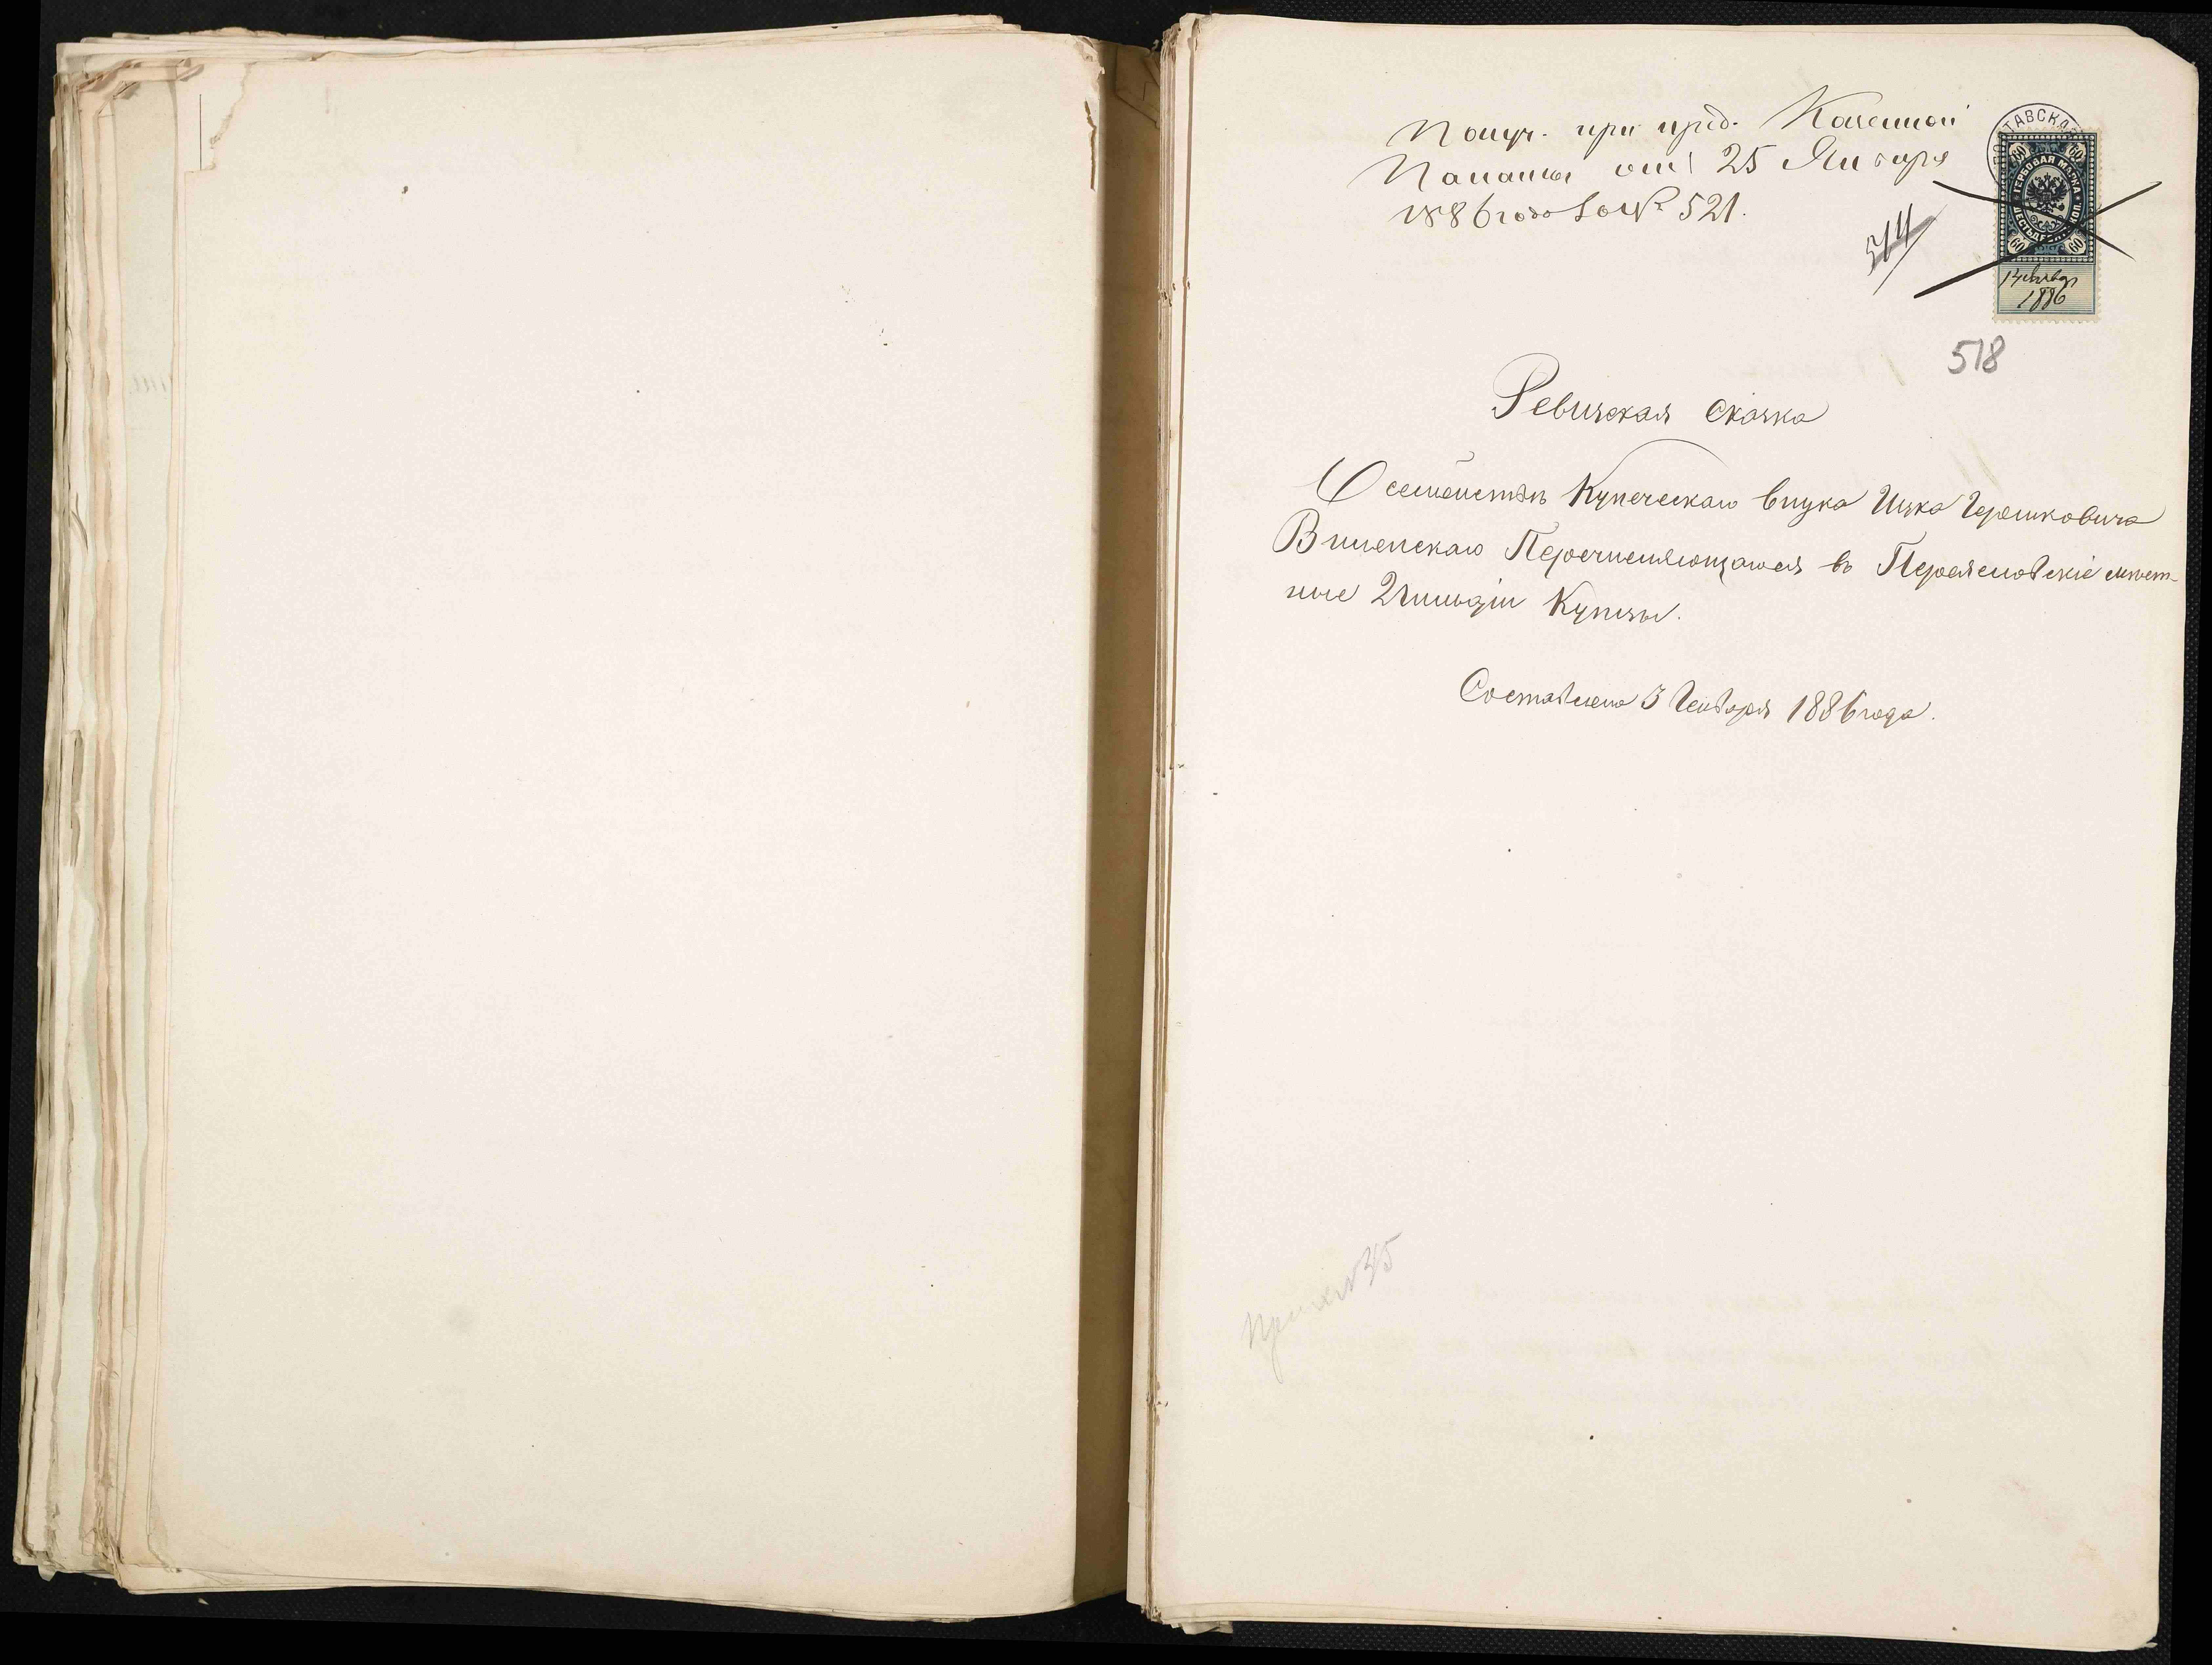 Получ. при пред. Казенной
Палаты отъ 25 Января
1886 года за № 521.
ПОЛТАВСКАЯ
60 60
ГЕРБОВАЯ МАРКА
ШЕСТЬДЕСЯТЪ КОП.
60 60
1886
514
518
Ревизская сказка
О семействѣ Купеческаго внука Ицка Гершковича
Виленскаго Перечисляющагося въ Переяславскіе мѣст-
ные 2 гильдіи Купцы.
Составлена 3 Генваря 1886 года.